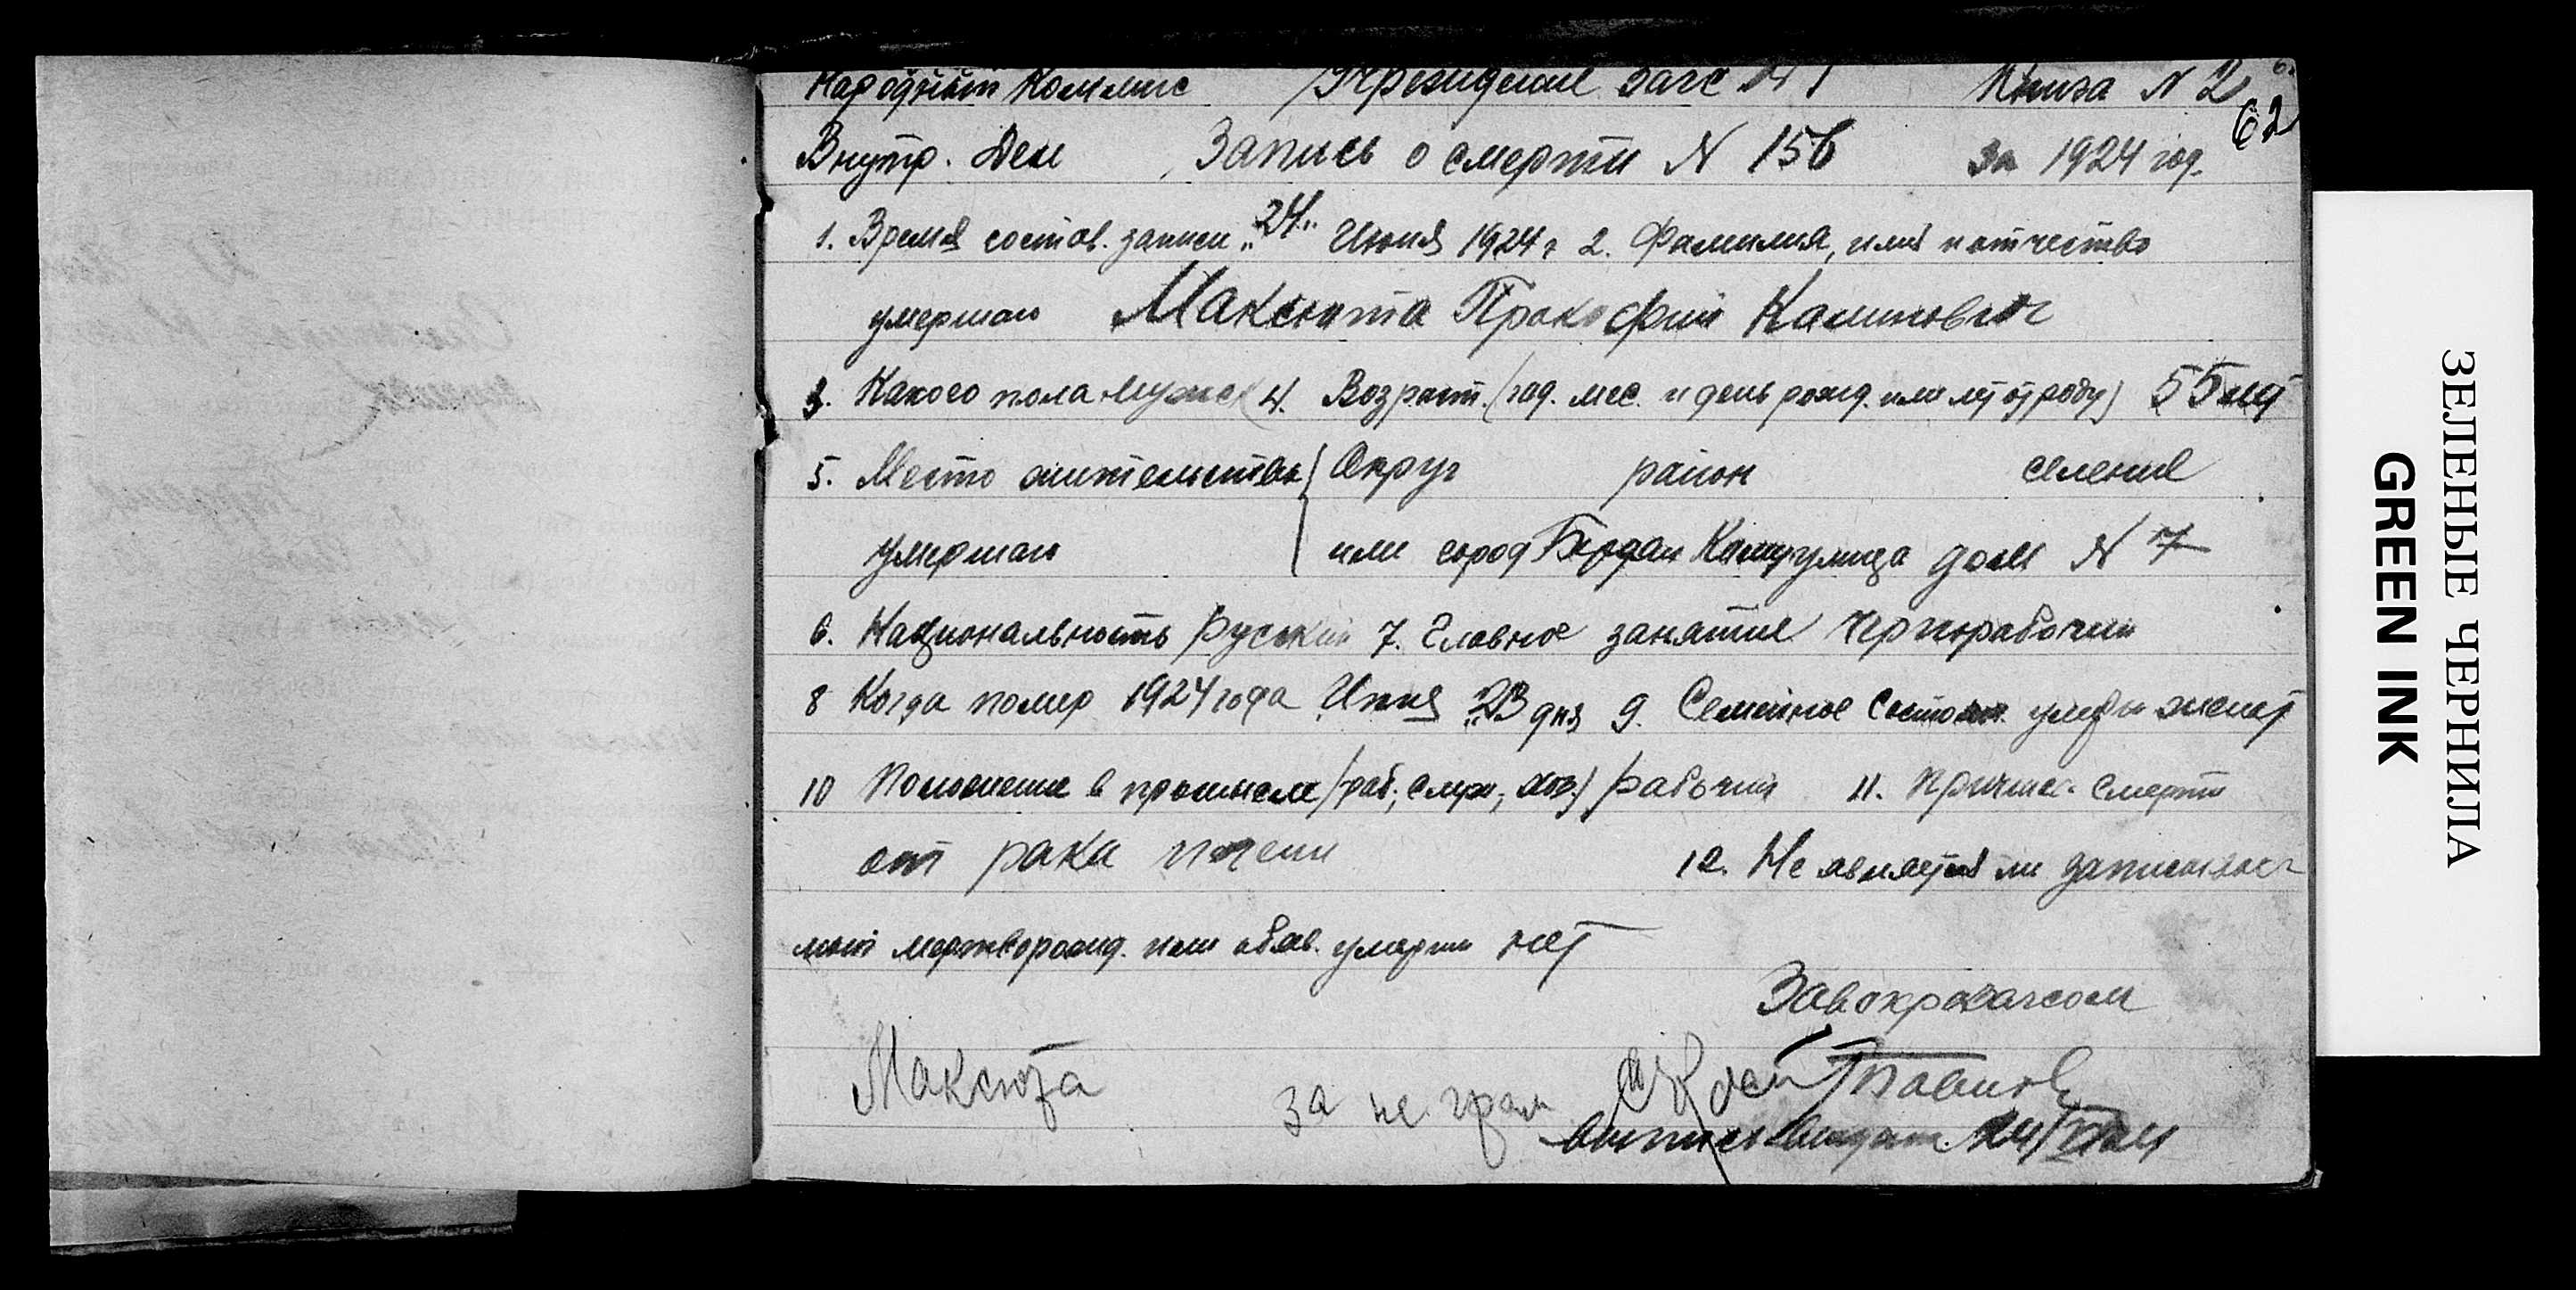 Народный Комисс Учреждение Загс N 1 Книга N 2
62
Внутр. Дел Запись о смерти N 156 за 1924 год.
1. Время состав. записи "24" Июня 1924 г 2. Фамилия, имя и отчество
умершаго Максюта Прокофий Калинович
3. Какого пола мужс 4. Возраст. (год. мес. и день рожд. или лет от роду) 55 лет
5. Место жительства Округ район селение
умершаго или город улица дом N 7
6. Национальность Руский 7. Главное занятие Чернорабочий
8 Когда помер 1924 года Июня "23 дня 9. Семейное состоян. умерш женат
10 Положение в промысле (раб., служ., хоз.) рабочий 11. Причина смерти
от рака печени 12. Не является ли записывае
мый мертворожд. или объяв. умерш нет
Завокрзагсом
Максюта за не грам
ЗЕЛЕНЫЕ ЧЕРНИЛА
GREEN INK